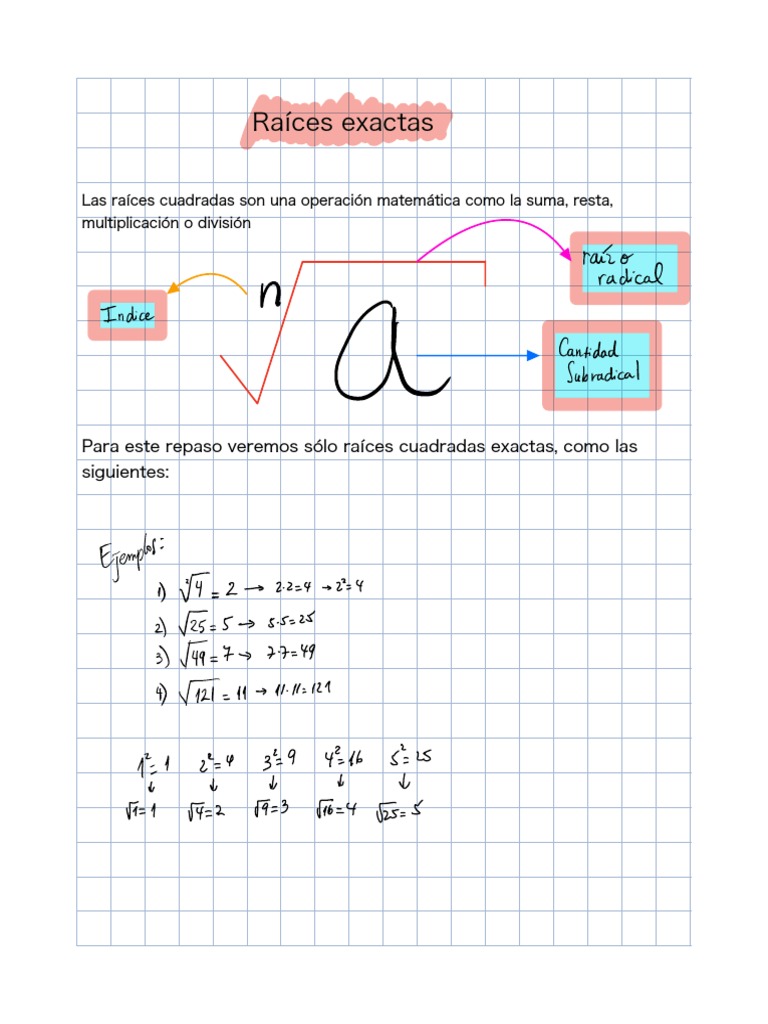 Raíces exactas
Las raíces cuadradas son una operación matemática como la suma, resta,
multiplicación o división
raíz o
radical
n
Indice
a
Cantidad
Subradical
Para este repaso veremos sólo raíces cuadradas exactas, como las
siguientes:
Ejemplos:
1) ²√4 = 2 → 2·2=4 → 2²=4
2) √25 = 5 → 5·5=25
3) √49 = 7 → 7·7=49
4) √121 = 11 → 11·11=121
1²=1 2²=4 3²=9 4²=16 5²=25
↓ ↓ ↓ ↓ ↓
√1=1 √4=2 √9=3 √16=4 √25=5